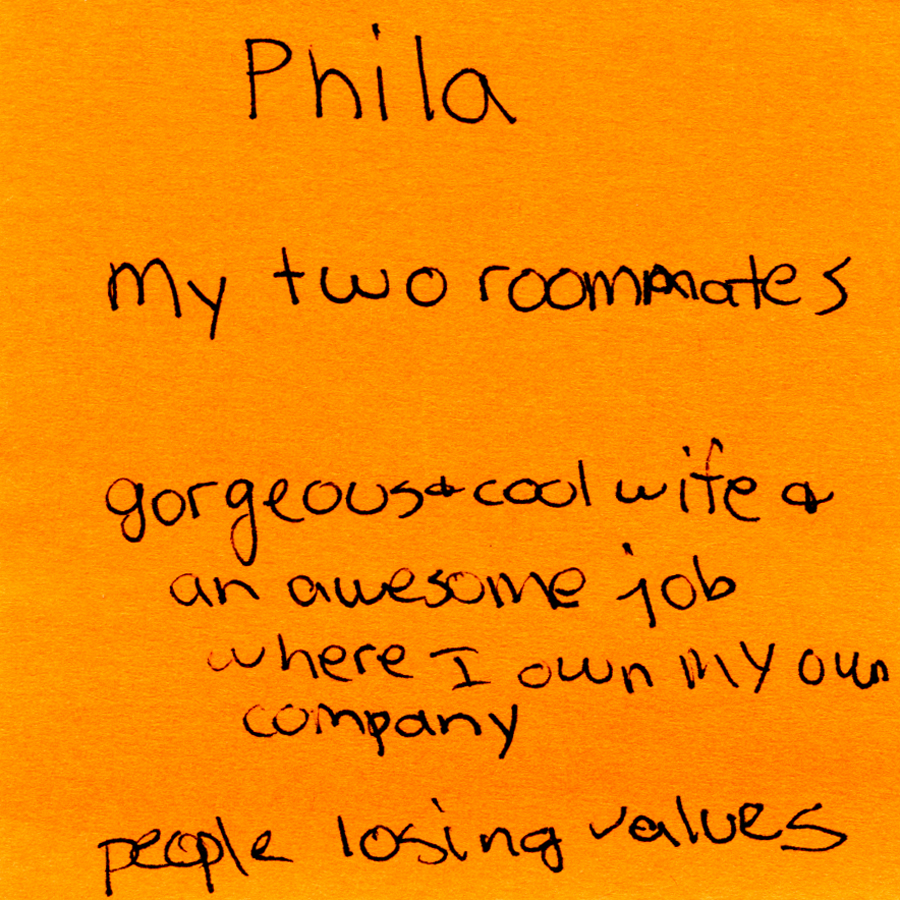 Phila
my two roommates
gorgeous & cool wife &
an awesome job
where I own my own
company
people losing values